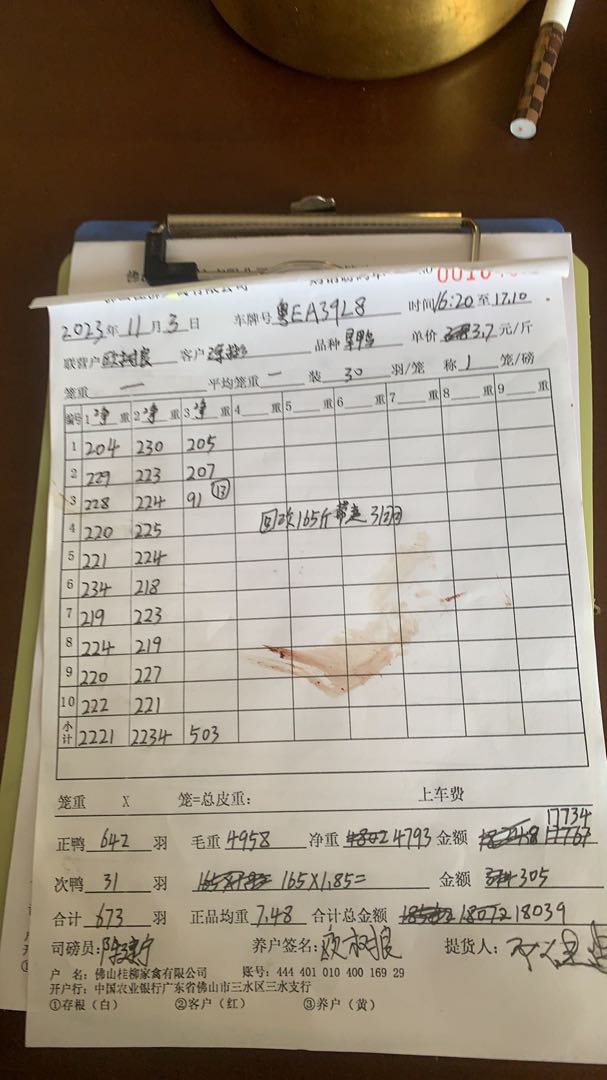 2023年11月3日 车牌号 粤EA39L8 时间16:20至17.10
联营户 欧树良 客户 品种 单价 3.7 元/斤
笼重 一 平均笼重 一 装 30 羽/笼 称 1 笼/磅
编号 1 净 重 2 净 重 3 净 重 4 重 5 重 6 重 7 重 8 重 9 重
1 204 230 205
2 229 223 207
3 228 224 91 ⑬
4 220 225 回次165斤 31回
5 221 224
6 234 218
7 219 223
8 224 219
9 220 227
10 222 221
小计 2221 2234 503
笼重 X 笼=总皮重: 上车费
17734
正鸭 642 羽 毛重 4958 净重 4793 金额 17767
次鸭 31 羽 165X1.85= 金额 305
合计 673 羽 正品均重 7.48 合计总金额 18072 18039
司磅员: 养户签名: 欧树良 提货人:
户 名: 佛山桂柳家禽有限公司 账号: 444 401 010 400 169 29
开户行: 中国农业银行广东省佛山市三水区三水支行
①存根(白) ②客户(红) ③养户(黄)